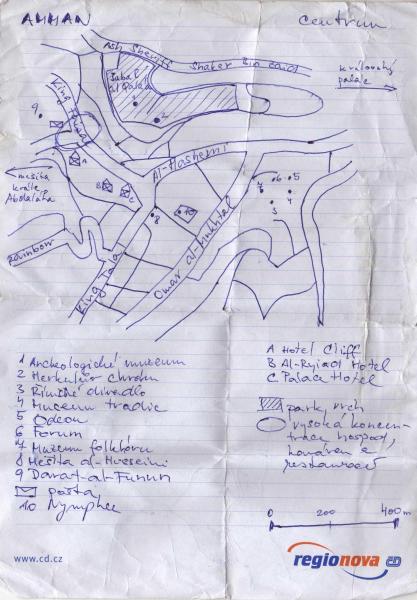 AMMAN
centrum
Ash Sheriff
Shaker Bin Zaid
Jabal
al Qala
1
2
královský
palác
9
King Faisal
A
B
C
Al-Hashemi
mešita
krále
Abdaláha
Rainbow
King Talal
8
10
Omar al-Mukhtar
6
5
7
4
3
1 Archeologické muzeum
2 Herkulův chrám
3 Římské divadlo
4 Muzeum tradic
5 Odeon
6 Forum
7 Muzeum folklóru
8 Mešita al-Husseini
9 Darat-al-Funun
pošta
10 Nymphee
A Hotel Cliff
B Al-Ryiad Hotel
C Palace Hotel
park, vrch
vysoká koncen-
trace hospod,
kaváren a
restaurací
0 200 400 m
www.cd.cz
regionova ČD